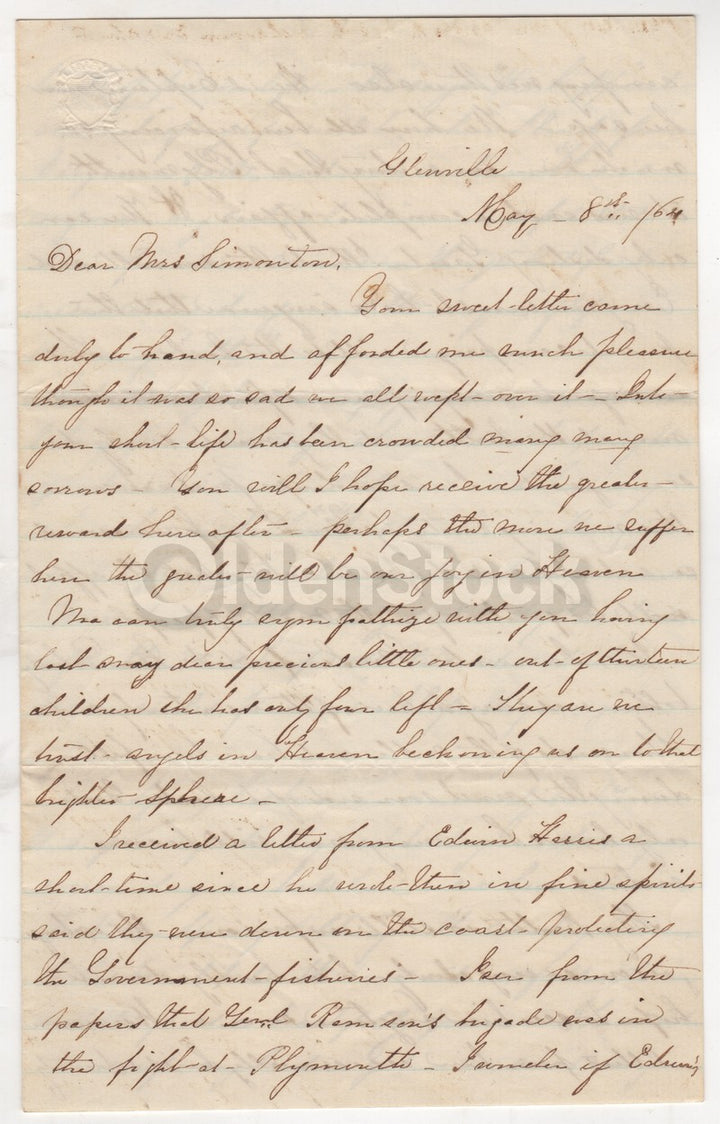 Glenville
May - 8th /64
Dear Mrs Simonton,
Your sweet letter came
duly to hand, and afforded me much pleasure
though it was so sad we all wept over it - Into
your short life has been crowded many many
sorrows - You will I hope receive the greater
reward here after - perhaps the more we suffer
here the greater will be our joy in Heaven
OldenStock
Ma can truly sympathize with you having
lost many dear precious little ones - out of thirteen
children she has only four left - They are we
trust angels in Heaven beckoning us on to that
brighter Sphere -
I received a letter from Edwin Harris a
short time since he wrote then in fine spirits
said they were down on the coast protecting
the Government fisheries - I see from the
papers that Genl Ramson's brigade was in
the fight at Plymouth - I wonder if Edwin's